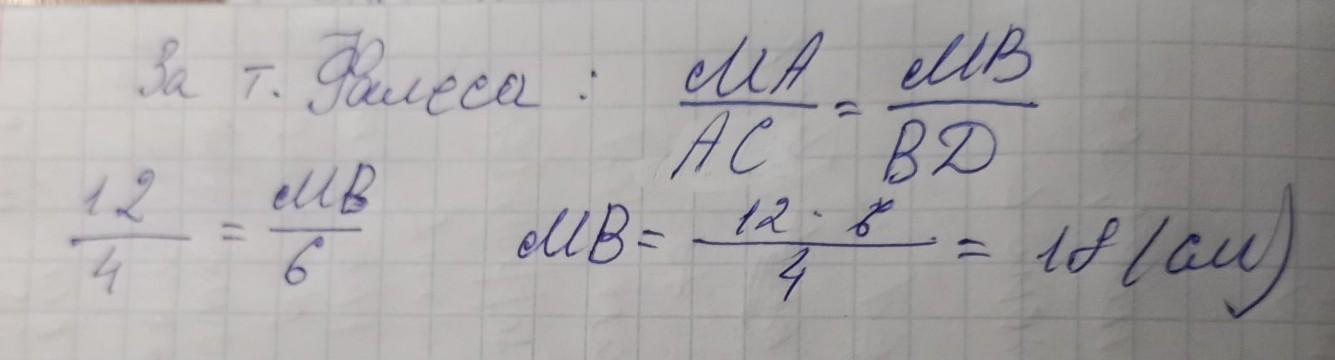 За т. Фалеса: MA/AC = MB/BD
12/4 = MB/6 MB = 12·6/4 = 18 (см)